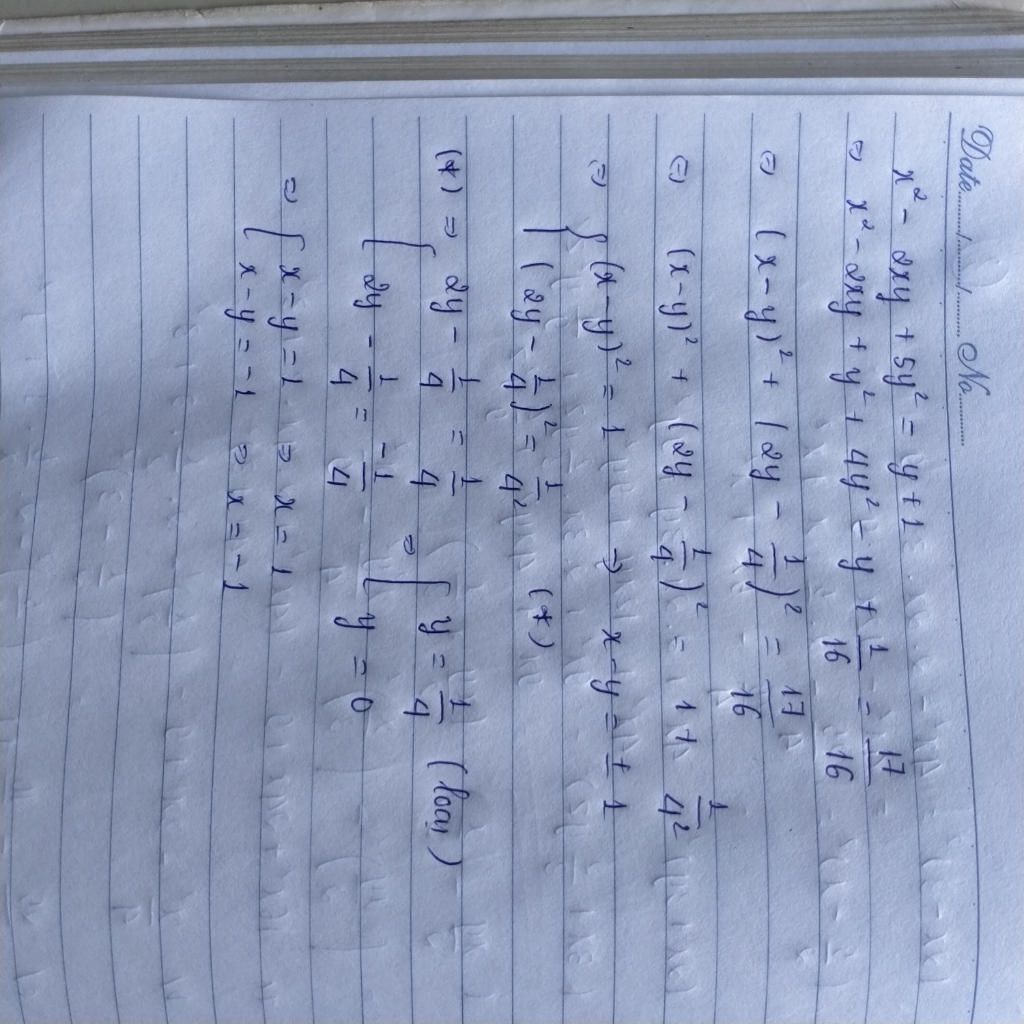 Date....../....../...... No..........
x² - 2xy + 5y² = y + 1
⇔ x² - 2xy + y² + 4y² - y + 1/16 = 17/16
⇔ (x - y)² + (2y - 1/4)² = 17/16
⇔ (x - y)² + (2y - 1/4)² = 1 + 1/4²
⇒ { (x - y)² = 1 ⇒ x - y = ± 1
(2y - 1/4)² = 1/4² (*)
(*) ⇒ [ 2y - 1/4 = 1/4 ⇒ [ y = 1/4 (loại)
2y - 1/4 = -1/4 y = 0
⇒ [ x - y = 1 ⇒ x = 1
x - y = -1 ⇒ x = -1